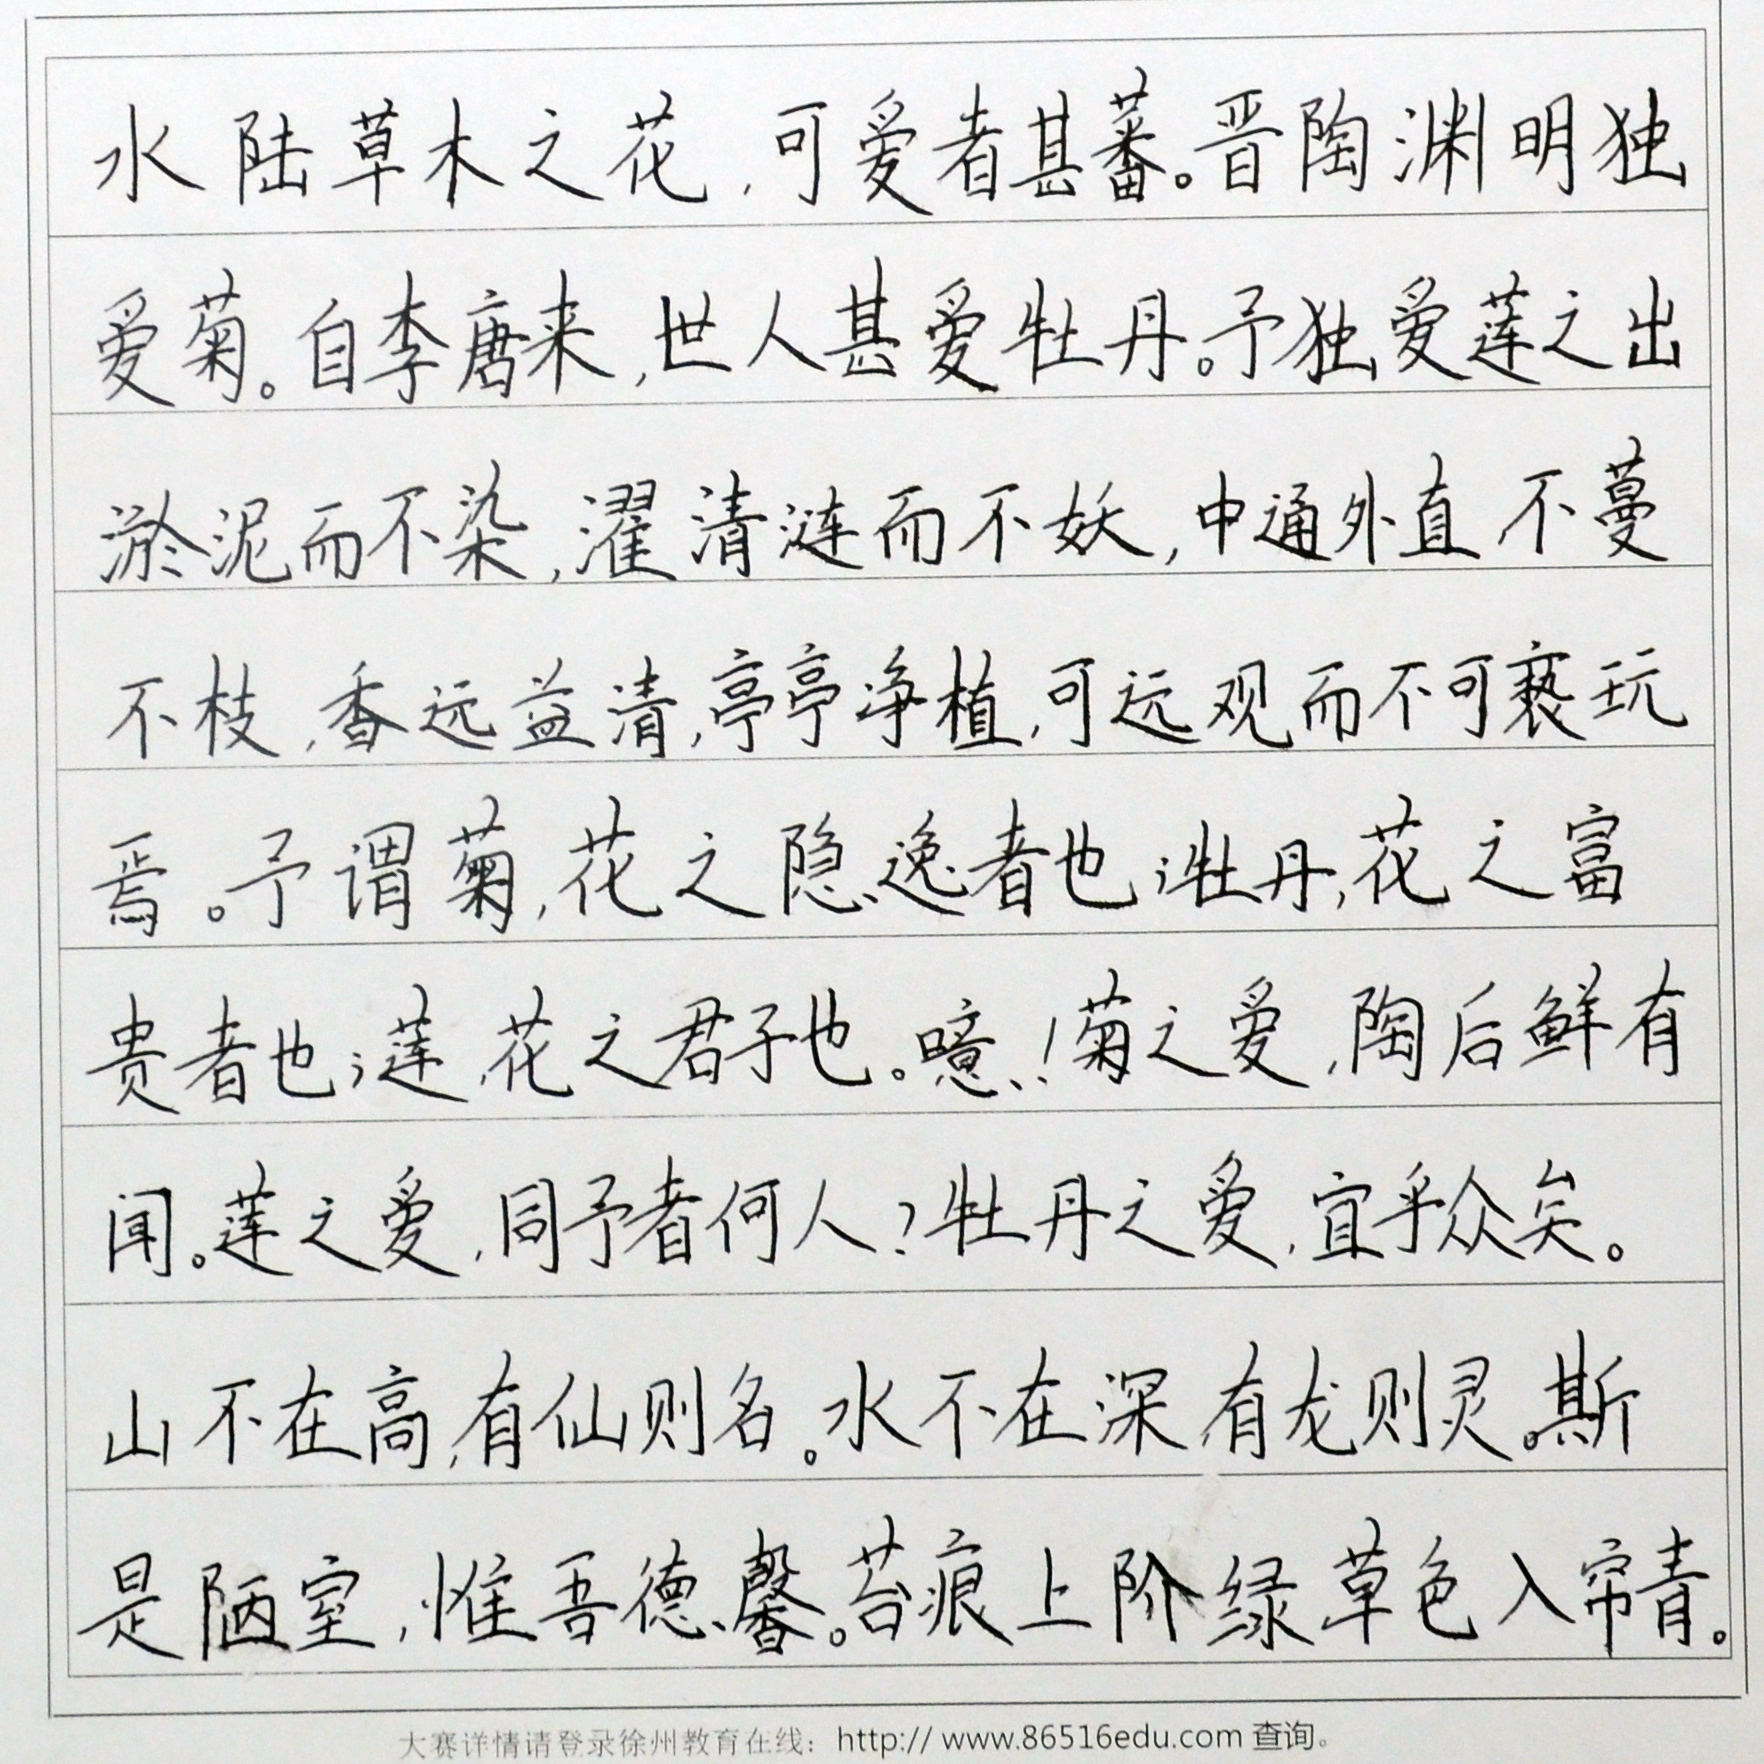 水陆草木之花,可爱者甚蕃。晋陶渊明独
爱菊。自李唐来,世人甚爱牡丹。予独爱莲之出
淤泥而不染,濯清涟而不妖,中通外直,不蔓
不枝,香远益清,亭亭净植,可远观而不可亵玩
焉。予谓菊,花之隐逸者也;牡丹,花之富
贵者也;莲,花之君子也。噫!菊之爱,陶后鲜有
闻。莲之爱,同予者何人?牡丹之爱,宜乎众矣。
山不在高,有仙则名。水不在深,有龙则灵。斯
是陋室,惟吾德馨。苔痕上阶绿,草色入帘青。
大赛详情请登录徐州教育在线：http://www.86516edu.com 查询。